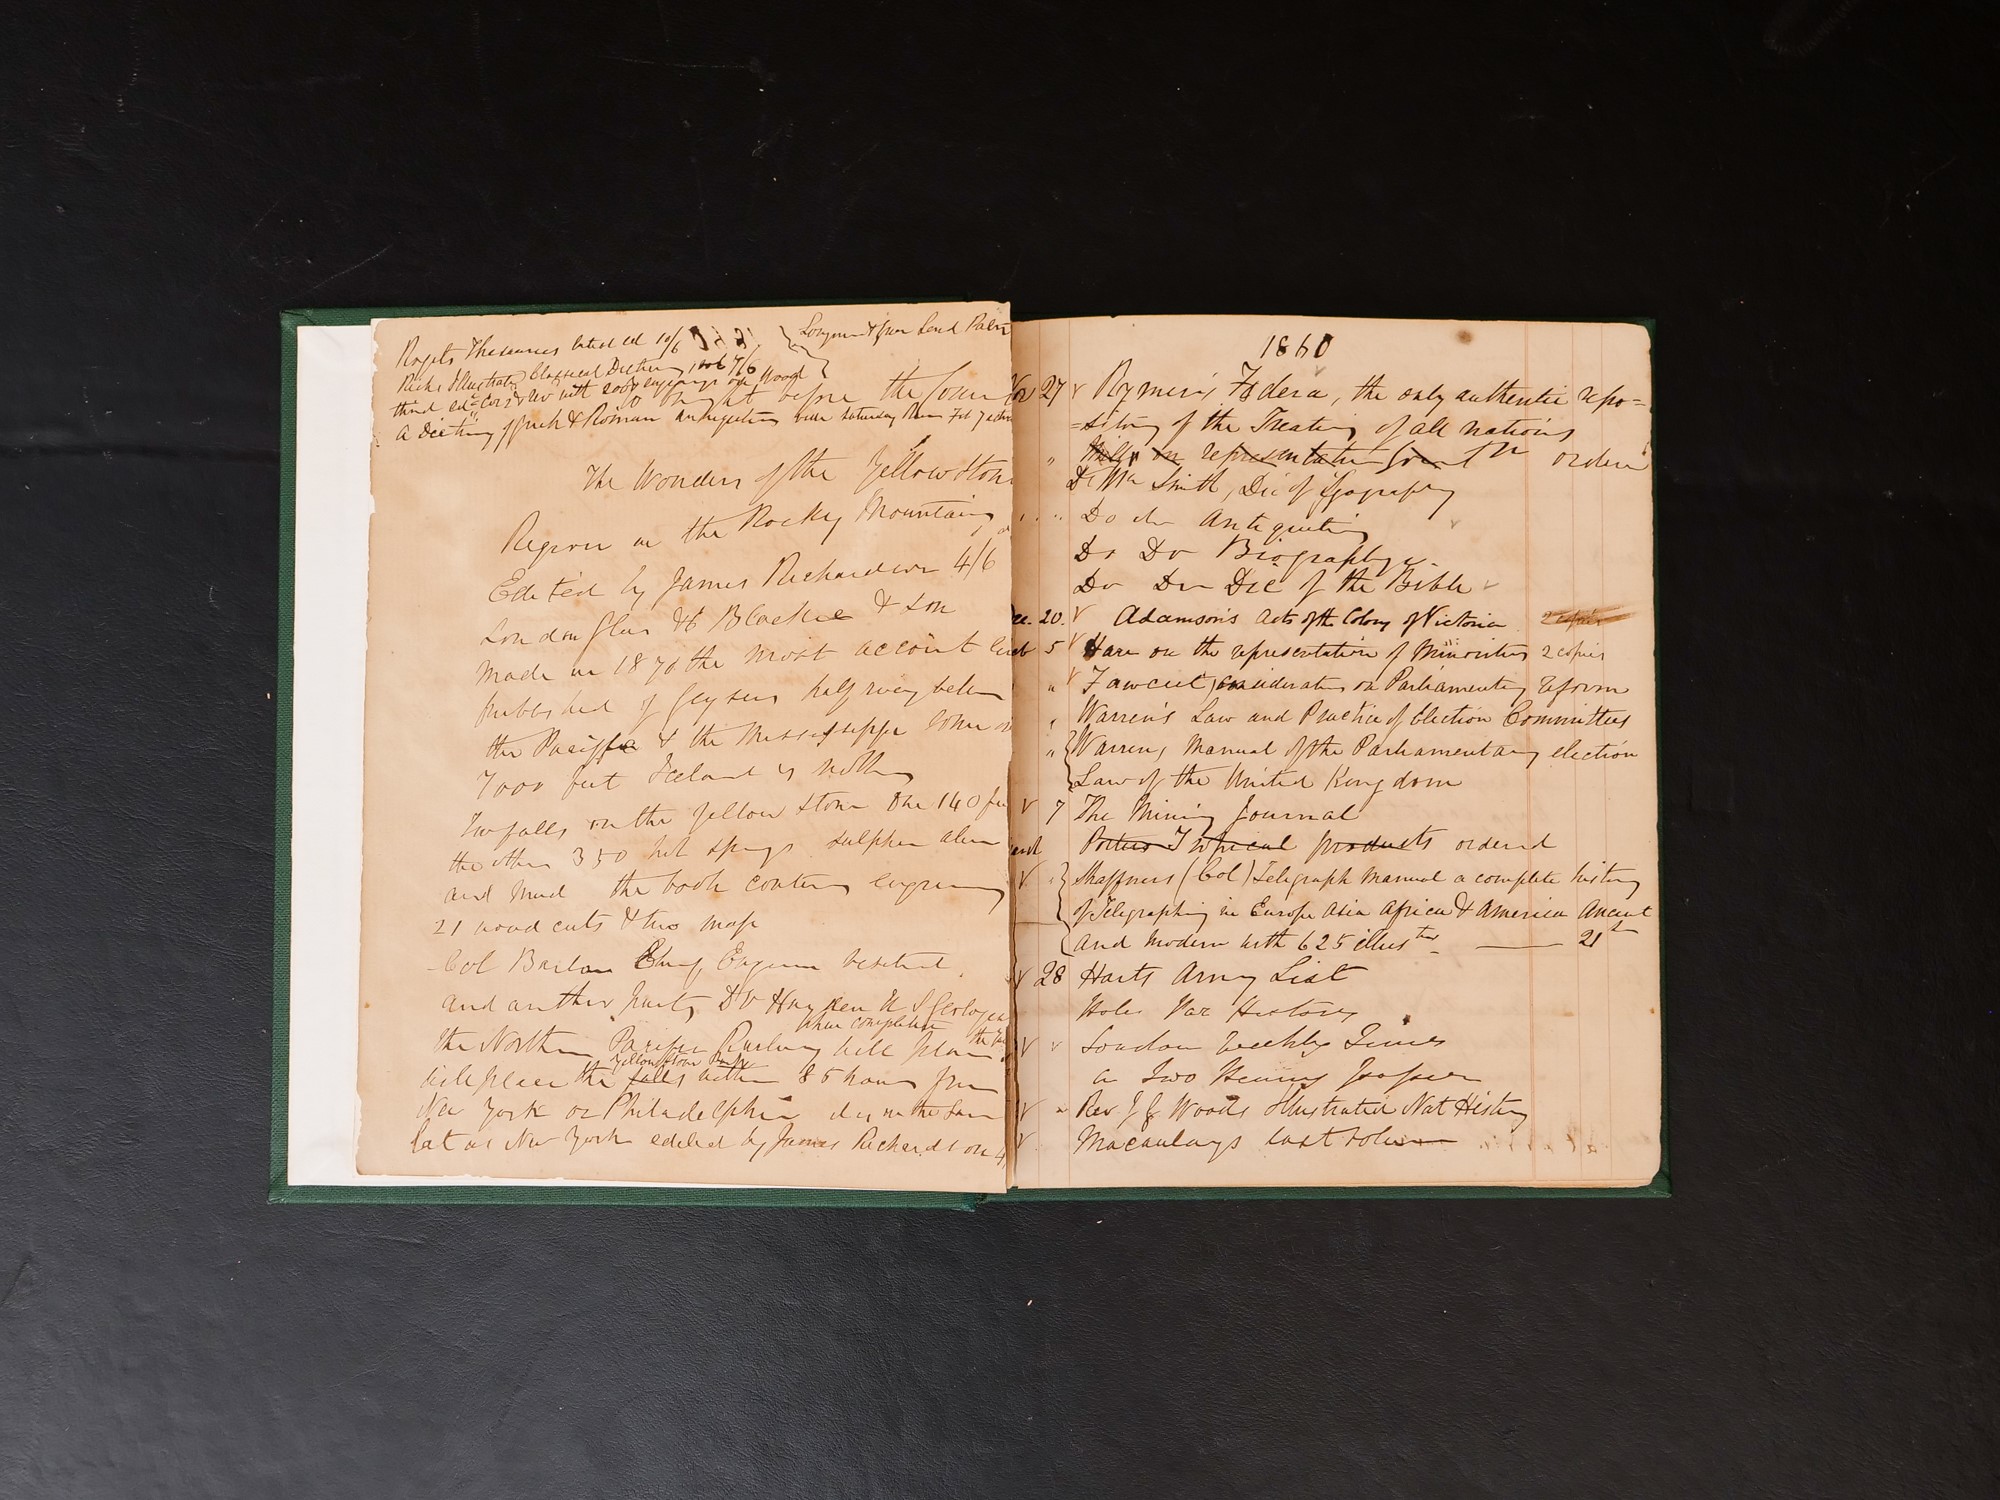 Rogets Thesaurus latest ed 10/6
Longman & Green Lond Pater
Richs Illustrated Classical Dictionary 1 vol 7/6
third edn Cor & Rev with 2000 engravings on Wood
brought before the
A Dictnry of Greek & Roman Antiquities
The Wonders of the Yellowston
Region in the Rocky Mountains
Edited by James Richardson 4/6
London Glas & Blackie & Son
Made in 1870 the most account
published of Geysers half way betwn
the Pacific & the Mississippi some
7000 feet Iceland is nothing
Two falls on the Yellow Stone One 140 fee
the other 350 hot springs sulphur alum
and Mud the book contains engraving
21 wood cuts & two maps
Col Barlow Chief Engineer
and another party Dr Hayden U S Geologis
when completed
the Northern Pacific Railway will place
Yellowstone
will place the falls within 85 hours from
New York or Philadelphia is in the same
lat as New York edited by James Richardson 4/
1860
Nov 27 √ Rymer's Fœdera, the only authentic repo=
=sitory of the Treaties of all nations
" Mill on representative Govt ordered
Dr Wm Smith, Dic of Geography
Do do Antiquities
Do Do Biography
Do Do Dic of the Bible √
Dec. 20. √ Adamson's Acts of the Colony of Victoria 2 copies
5 √ Hare on the representation of Minorities 2 copies
" √ Fawcett, considerations on Parliamentary Reform
" Warren's Law and Practice of Election Committees
" Warrens Manual of the Parliamentary election
Law of the United Kingdom
√ 7 The Mining Journal
Porters Tropical products ordered
√ Shaffners (Col) Telegraph Manual a complete history
of Telegraphing in Europe Asia Africa & America Ancient
and Modern with 625 illustns — 21
√ 28 Harts Army List
War History
√ √ London Weekly Times
a Two Penny
√ " Rev J G Woods Illustrated Nat History
√ Macaulays last volume